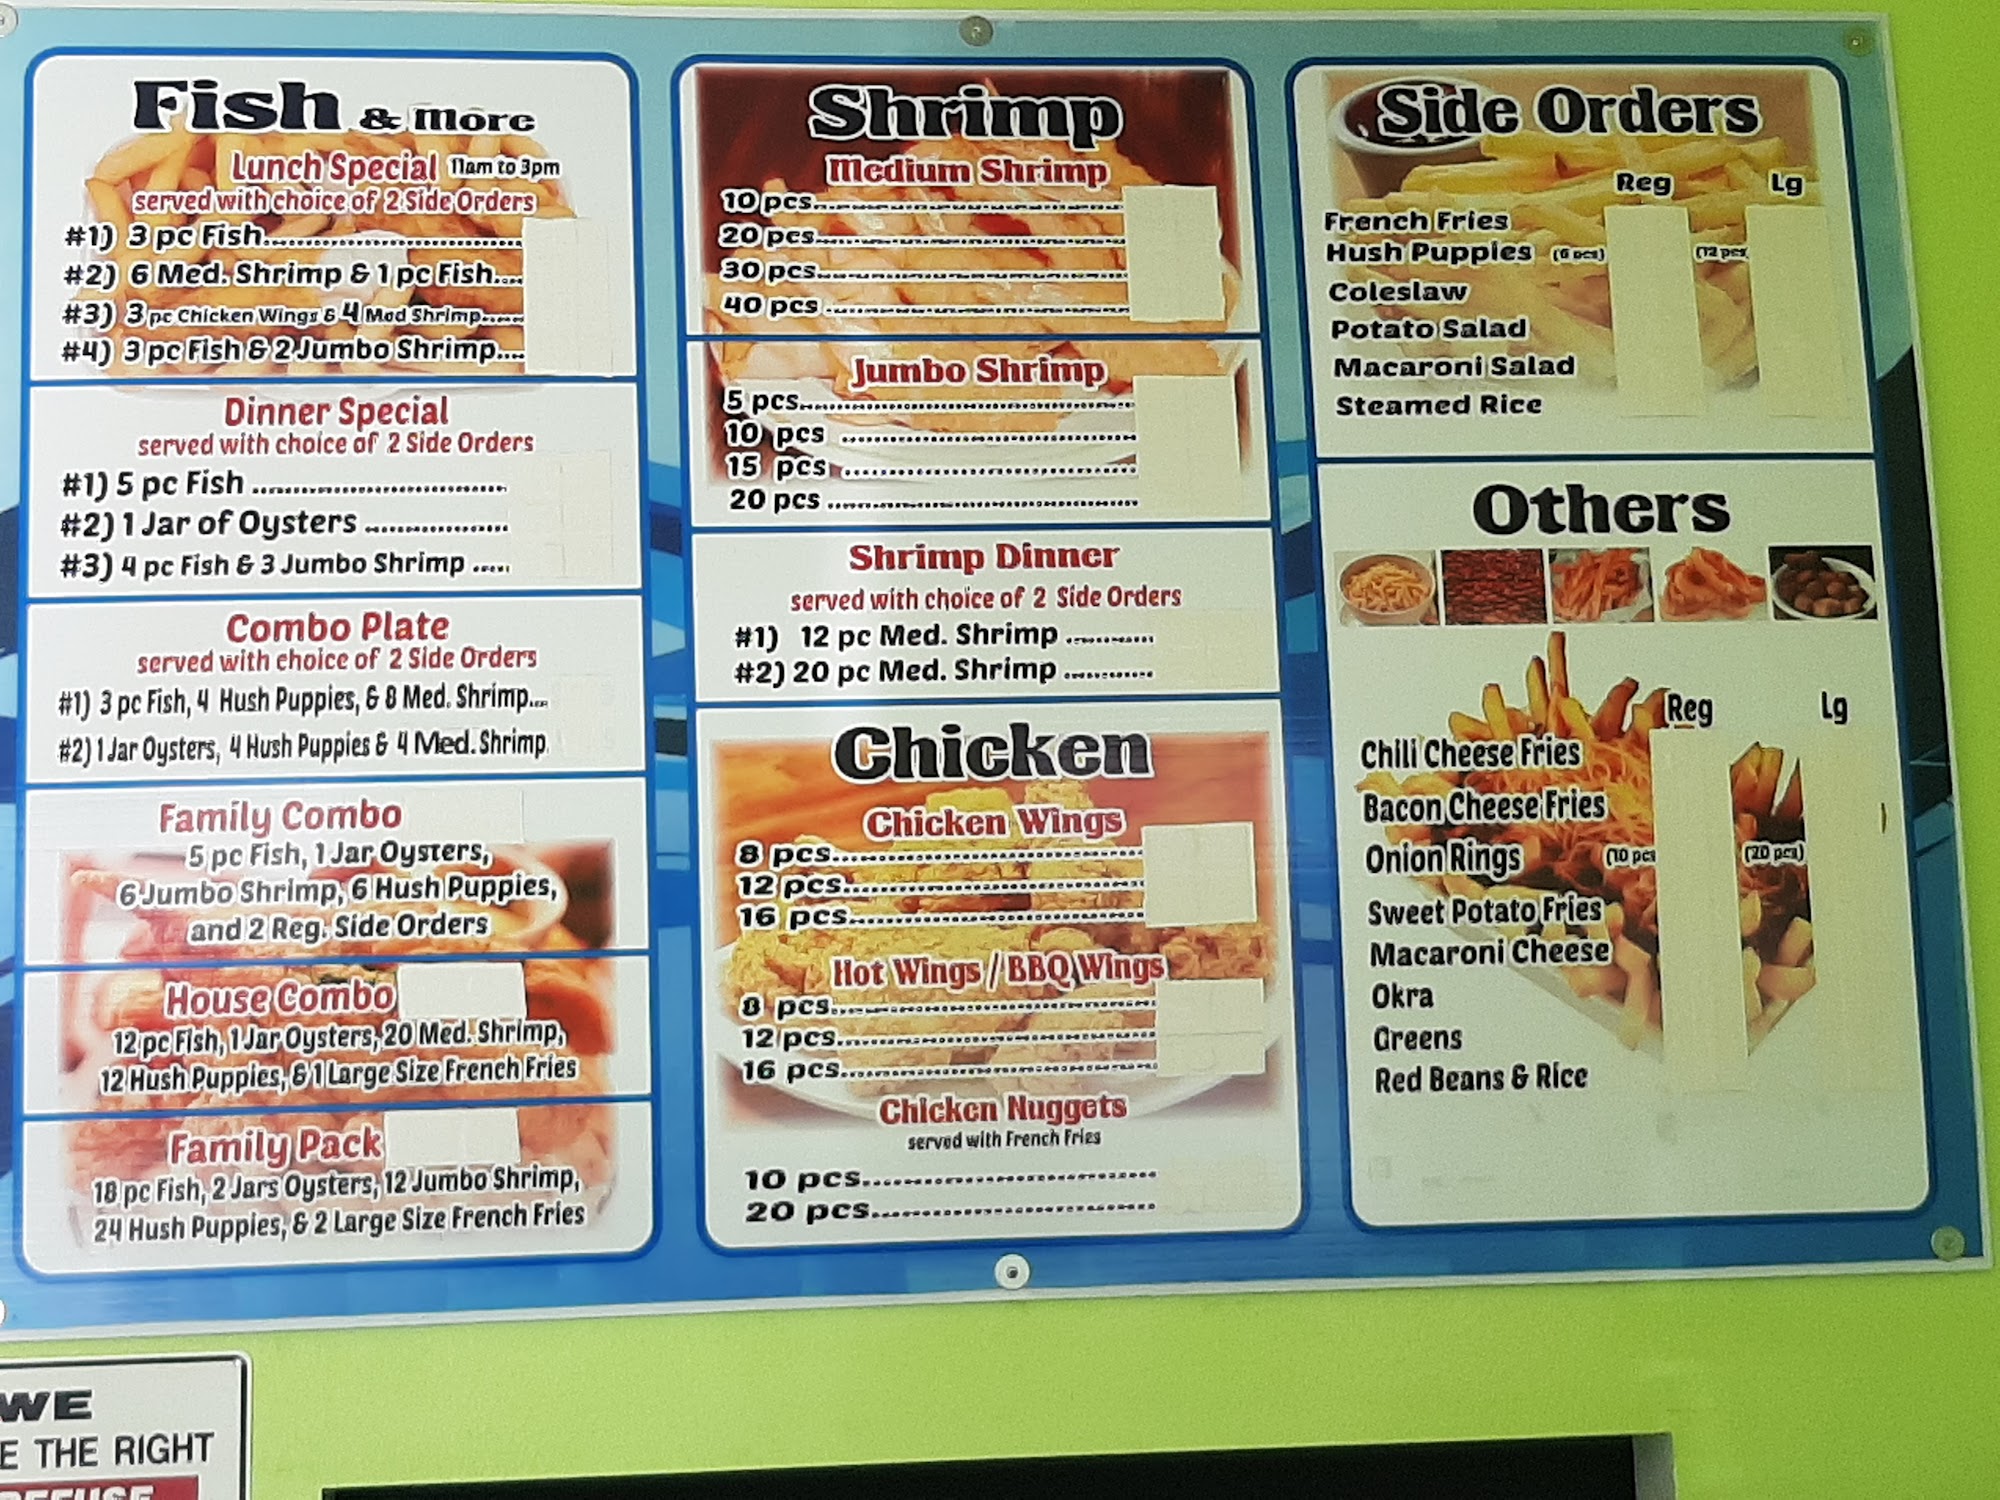 Fish & More
Lunch Special 11am to 3pm
served with choice of 2 Side Orders
#1) 3 pc Fish
#2) 6 Med. Shrimp & 1 pc Fish
#3) 3 pc Chicken Wings & 4 Med Shrimp
#4) 3 pc Fish & 2 Jumbo Shrimp
Dinner Special
served with choice of 2 Side Orders
#1) 5 pc Fish
#2) 1 Jar of Oysters
#3) 4 pc Fish & 3 Jumbo Shrimp
Combo Plate
served with choice of 2 Side Orders
#1) 3 pc Fish, 4 Hush Puppies, & 8 Med. Shrimp
#2) 1 Jar Oysters, 4 Hush Puppies & 4 Med. Shrimp
Family Combo
5 pc Fish, 1 Jar Oysters,
6 Jumbo Shrimp, 6 Hush Puppies,
and 2 Reg. Side Orders
House Combo
12 pc Fish, 1 Jar Oysters, 20 Med. Shrimp,
12 Hush Puppies, & 1 Large Size French Fries
Family Pack
18 pc Fish, 2 Jars Oysters, 12 Jumbo Shrimp,
24 Hush Puppies, & 2 Large Size French Fries
Shrimp
Medium Shrimp
10 pcs
20 pcs
30 pcs
40 pcs
Jumbo Shrimp
5 pcs
10 pcs
15 pcs
20 pcs
Shrimp Dinner
served with choice of 2 Side Orders
#1) 12 pc Med. Shrimp
#2) 20 pc Med. Shrimp
Chicken
Chicken Wings
8 pcs
12 pcs
16 pcs
Hot Wings / BBQ Wings
8 pcs
12 pcs
16 pcs
Chicken Nuggets
served with French Fries
10 pcs
20 pcs
Side Orders
Reg Lg
French Fries
Hush Puppies (6 pcs) (12 pcs
Coleslaw
Potato Salad
Macaroni Salad
Steamed Rice
Others
Reg Lg
Chili Cheese Fries
Bacon Cheese Fries
Onion Rings (10 pcs (20 pcs)
Sweet Potato Fries
Macaroni Cheese
Okra
Greens
Red Beans & Rice
WE
E THE RIGHT
REFUSE